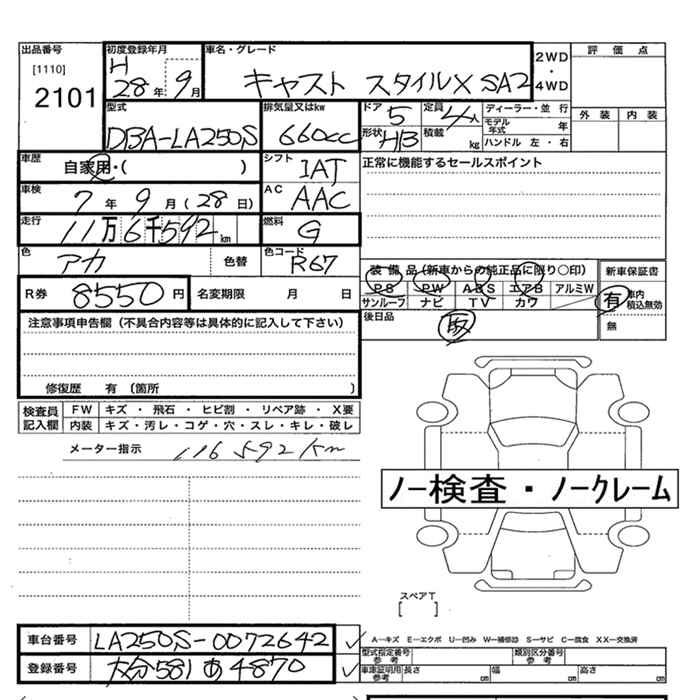 出品番号 [1110] 2101
初度登録年月 H 28年 9月
車名・グレード キャスト スタイルX SA2
2WD・4WD
評価点
外装 内装
型式 DBA-LA250S
排気量又はkw 660cc
ドア 5
形状 HB
定員 4人
積載 kg
ディーラー・並行
モデル年式 年
ハンドル 左・右
車歴 自家用・( )
シフト IAT
正常に機能するセールスポイント
車検 7年 9月(28日)
AC AAC
走行 11万6千592km
燃料 G
色 アカ 色替
色コード R67
装備品(新車からの純正品に限り○印)
PS PW ABS エアB アルミW
サンルーフ ナビ TV カワ
後日品
新車保証書
有 車内積込無効
無
R券 8550円
名変期限 月 日
注意事項申告欄(不具合内容等は具体的に記入して下さい)
修復歴 有(箇所 )
検査員記入欄
FW キズ・飛石・ヒビ割・リペア跡・X要
内装 キズ・汚レ・コゲ・穴・スレ・キレ・破レ
メーター指示 116592km
ノー検査・ノークレーム
スペアT
[ ]
車台番号 LA250S-0072642
登録番号 大分581あ4870
A－キズ E－エクボ U－凹み W－補修跡 S－サビ C－腐食 XX－交換済
型式指定番号 参考
類別区分番号 参考
車庫証明用 参考 長さ cm 幅 cm 高さ cm